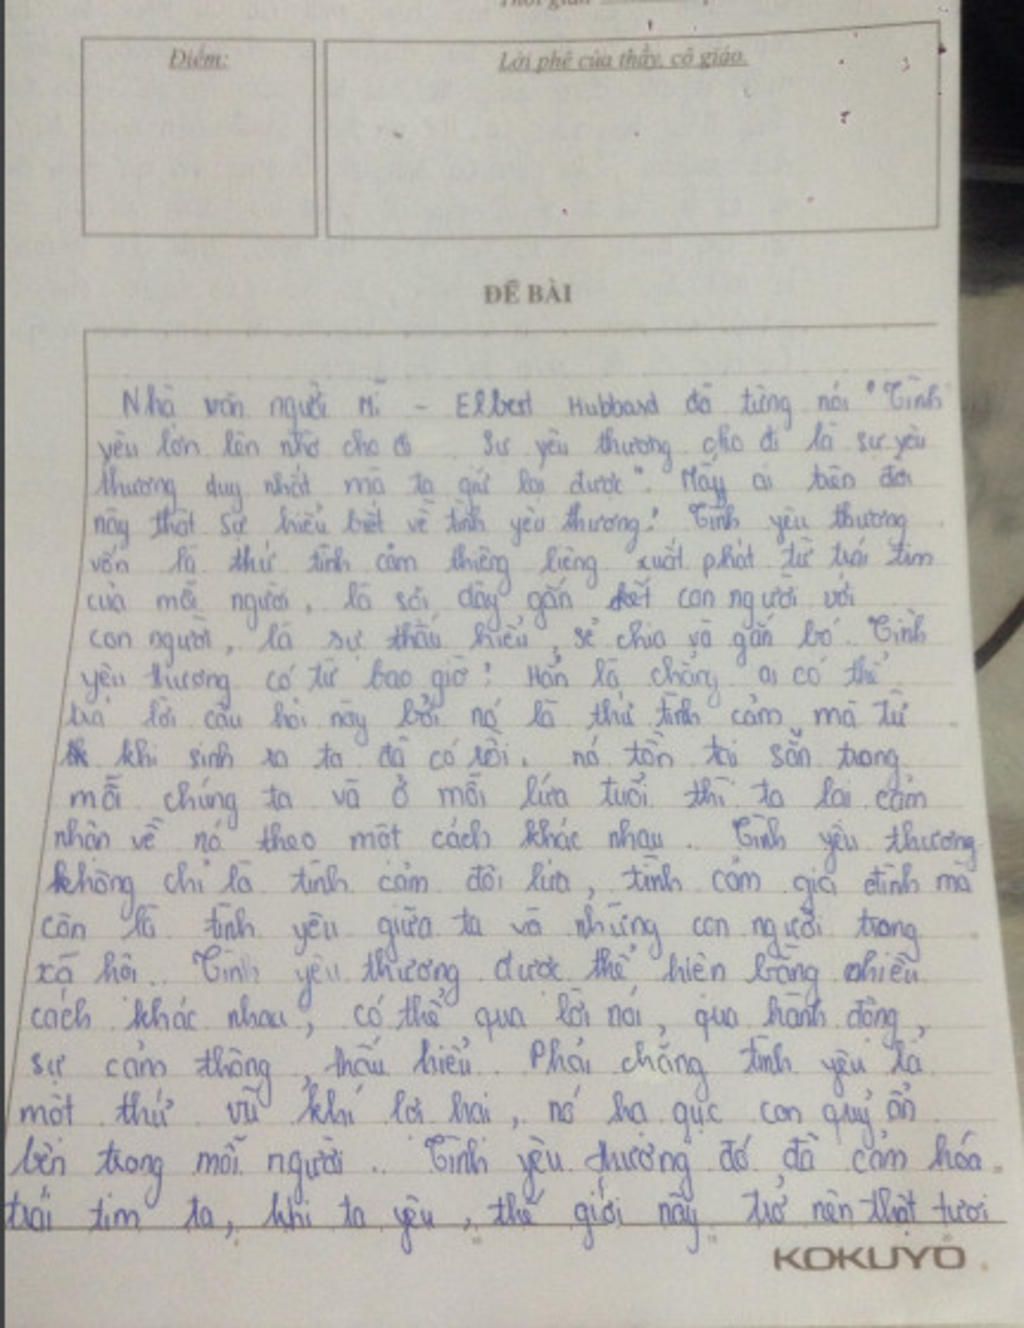 Thời gian
Điểm:
Lời phê của thầy, cô giáo.
ĐỀ BÀI
Nhà văn người Mĩ - Elbert Hubbard đã từng nói "Tình
yêu lớn lên nhờ cho đi. Sự yêu thương cho đi là sự yêu
thương duy nhất mà ta giữ lại được". Mấy ai trên đời
này thật sự hiểu biết về tình yêu thương? Tình yêu thương
vốn là thứ tình cảm thiêng liêng xuất phát từ trái tim
của mỗi người, là sợi dây gắn kết con người với
con người, là sự thấu hiểu, sẻ chia và gắn bó. Tình
yêu thương có từ bao giờ? Hẳn là chẳng ai có thể
trả lời câu hỏi này bởi nó là thứ tình cảm mà từ
khi sinh ra ta đã có rồi, nó tồn tại sẵn trong
mỗi chúng ta và ở mỗi lứa tuổi thì ta lại cảm
nhận về nó theo một cách khác nhau. Tình yêu thương
không chỉ là tình cảm đôi lứa, tình cảm gia đình mà
còn là tình yêu giữa ta và những con người trong
xã hội. Tình yêu thương được thể hiện bằng nhiều
cách khác nhau, có thể qua lời nói, qua hành động,
sự cảm thông, thấu hiểu. Phải chăng tình yêu là
một thứ vũ khí lợi hại, nó hạ gục con quỷ ẩn
bên trong mỗi người. Tình yêu thương đó đã cảm hóa
trái tim ta, khi ta yêu, thế giới này trở nên thật tươi
KOKUYO